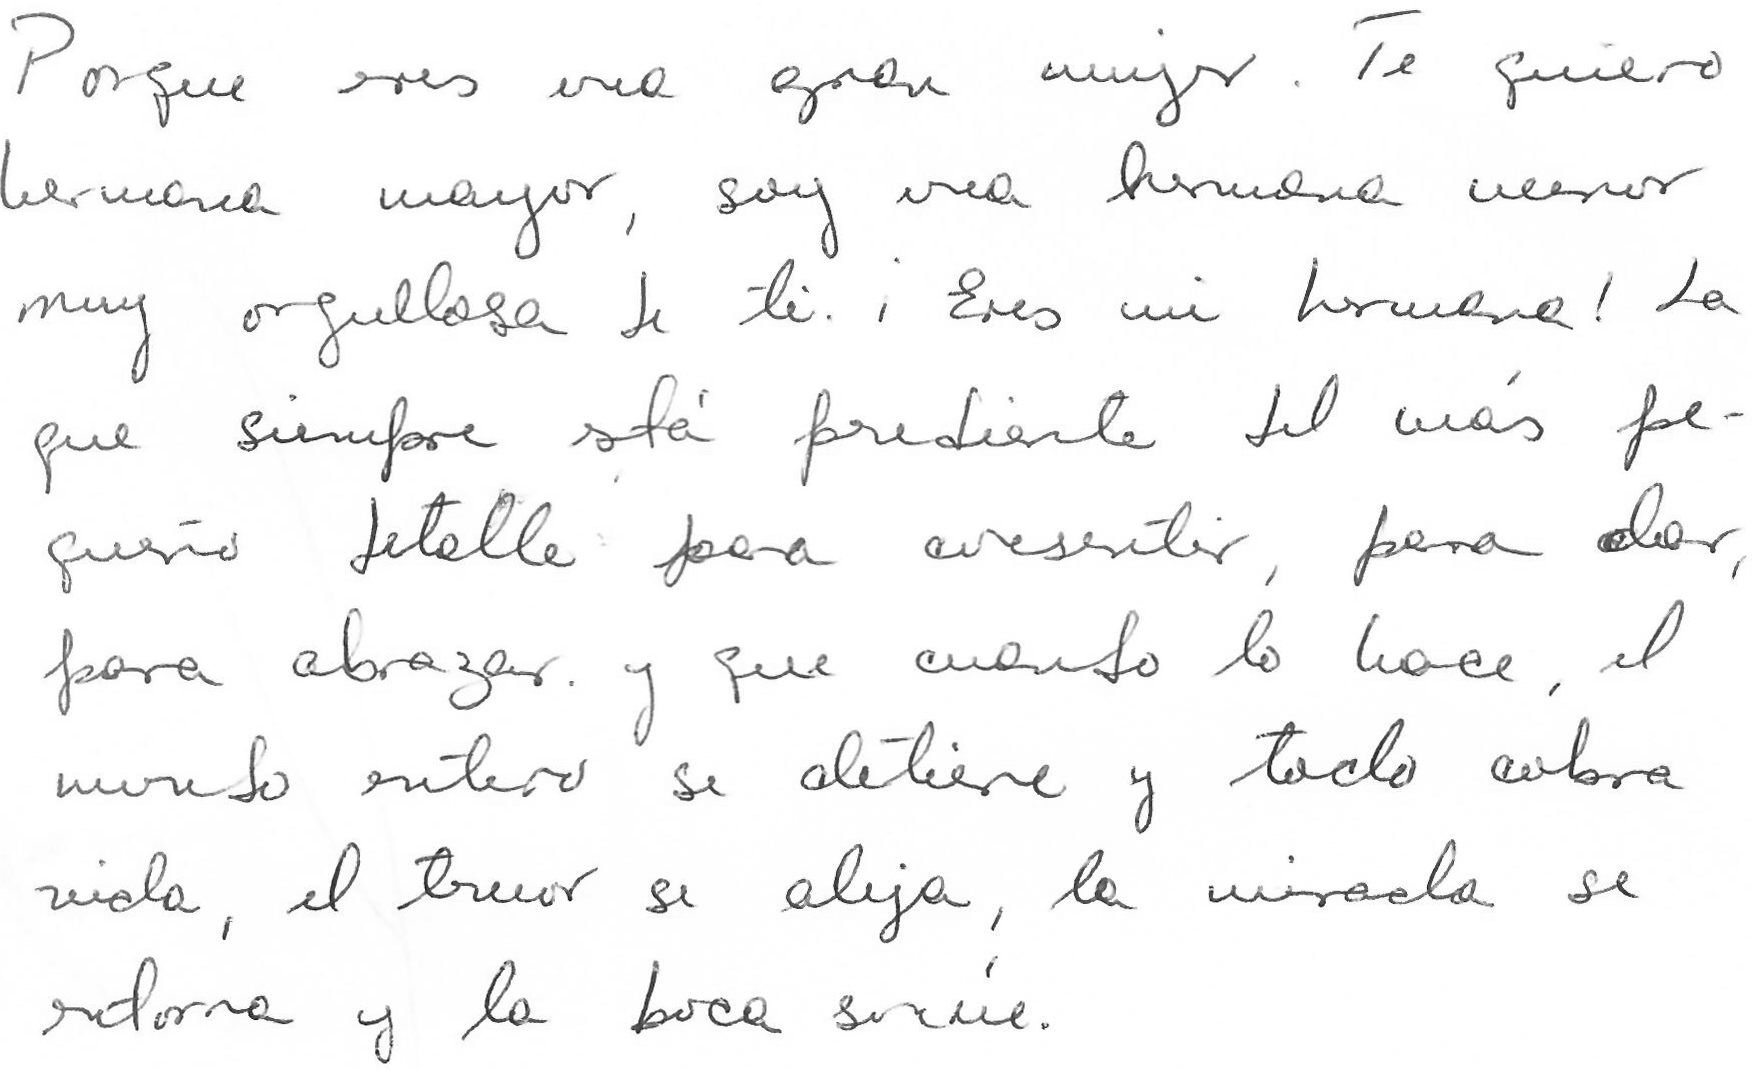 Porque eres una gran mujer. Te quiero
hermana mayor, soy una hermana menor
muy orgullosa de ti. ¡Eres mi hermana! La
que siempre está pendiente del más pe-
queño detalle para consentir, para dar,
para abrazar. y que cuando lo hace, el
mundo entero se detiene y todo cobra
vida, el temor se aleja, la mirada se
entorna y la boca sonríe.